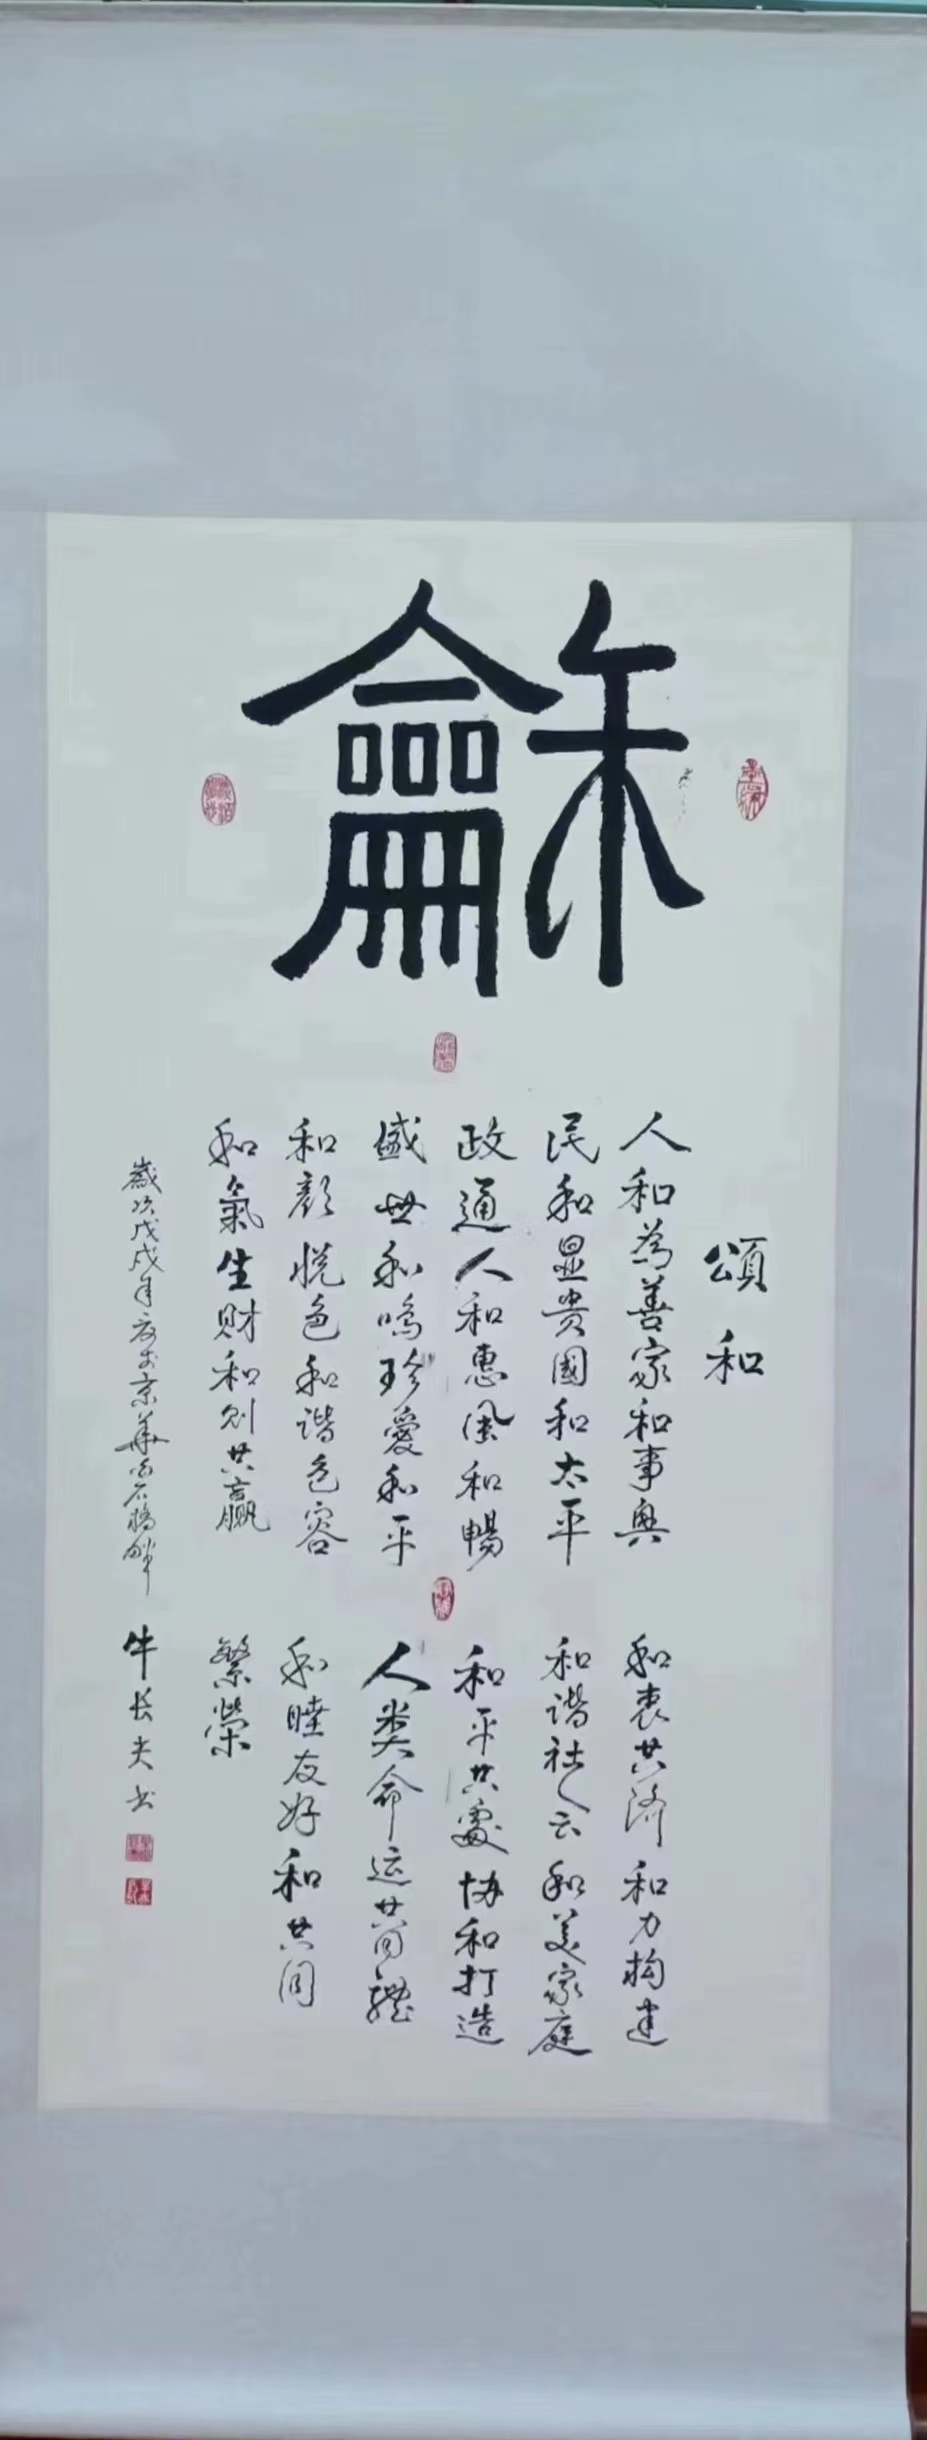 龢
頌和
人和為善家和事興
民和显贵國和太平
政通人和惠風和暢
盛世和鳴珍愛和平
和颜悦色和谐包容
和氣生财和则共赢
和衷共济和力构建
和谐社会和美家庭
和平共處协和打造
人类命运共同體
和睦友好和共同
繁榮
歲次戊戌年 京華白石橋畔
牛长夫书